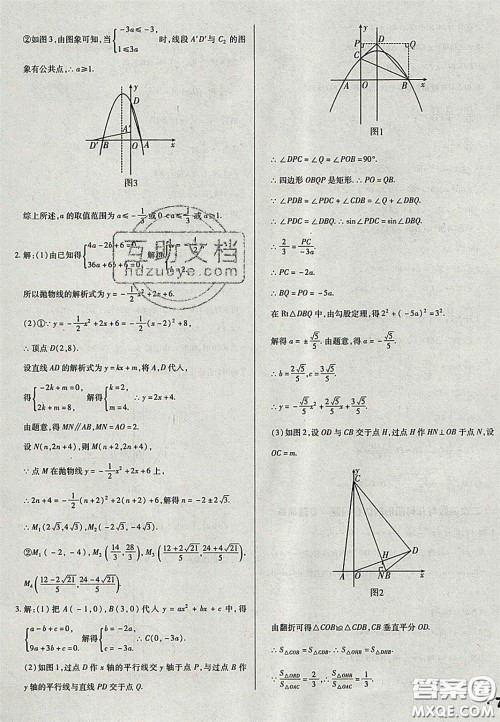 ②如图3,由图象可知,当{-3a≤-3, 1≤3a 时,线段A'D'与C₂的图
象有公共点,∴a≥1.
y
D
A'
D' B' O A x
图3
综上所述,a的取值范围为a≤-1/3或0<a≤1/3或a≥1.
2.解:(1)由已知得{4a-2b+6=0, 36a+6b+6=0. 解得
所以抛物线的解析式为y=-1/2x²+2x+6.
(2)①∵y=-1/2x²+2x+6=-1/2(x-2)²+8,
∴顶点D(2,8).
设直线AD的解析式为y=kx+m,将A,D代入,
得{-2k+m=0, 2k+m=8, 解得{k=2, m=4. ∴y=2x+4.
由题意,得MN∥AB,MN=AO=2.
设N(n,2n+4),则M(n+2,2n+4),
∵点M在抛物线y=-1/2x²+2x+6上,
∴2n+4=-1/2(n+2)²+2(n+2)+6,解得n=-2±2√3.
∴M₁(2√3,4√3),M₂(-2√3,-4√3).
②M₁(-2,-4),M₂(14/3,28/3),M₃((12+2√21)/5,(24+4√21)/5),
M₄((12-2√21)/5,(24-4√21)/5).
3.解:(1)把A(-1,0),B(3,0)代入y=ax²+bx+c中,得
{a-b+c=0, 9a+3b+c=0. 解得{b=-2a, c=-3a. ∴C(0,-3a).
(2)如图1,过点D作x轴的平行线交y轴于点P,与过点B作
y轴的平行线与直线PD交于点Q.
y
P D Q
C
A O B x
图1
∴∠DPC=∠Q=∠POB=90°.
∴四边形OBQP是矩形.∴PD=OC.
∵∠PDC+∠PCD=∠PDC+∠QDB=90°,
∴∠PDC=∠QBD.∴sin∠PDC=sin∠QBD.
∴2/3=PC/-3a.
∴PC=-2a.
∴BQ=PO=-5a.
在Rt△DBQ中,由勾股定理,得2²+(-5a)²=3².
解得a=±√5/5.由题意,得a=-√5/5.
∴b=2√5/5,c=3√5/5.
∴y=-√5/5x²+2√5/5x+3√5/5.
(3)如图2,设OD与CB交于点H,过点H作HN⊥OB于点N,设
OC=m.
y
C
H D
A O N B x
图2
由翻折可得△COB≌△CDB,CB垂直平分OD.